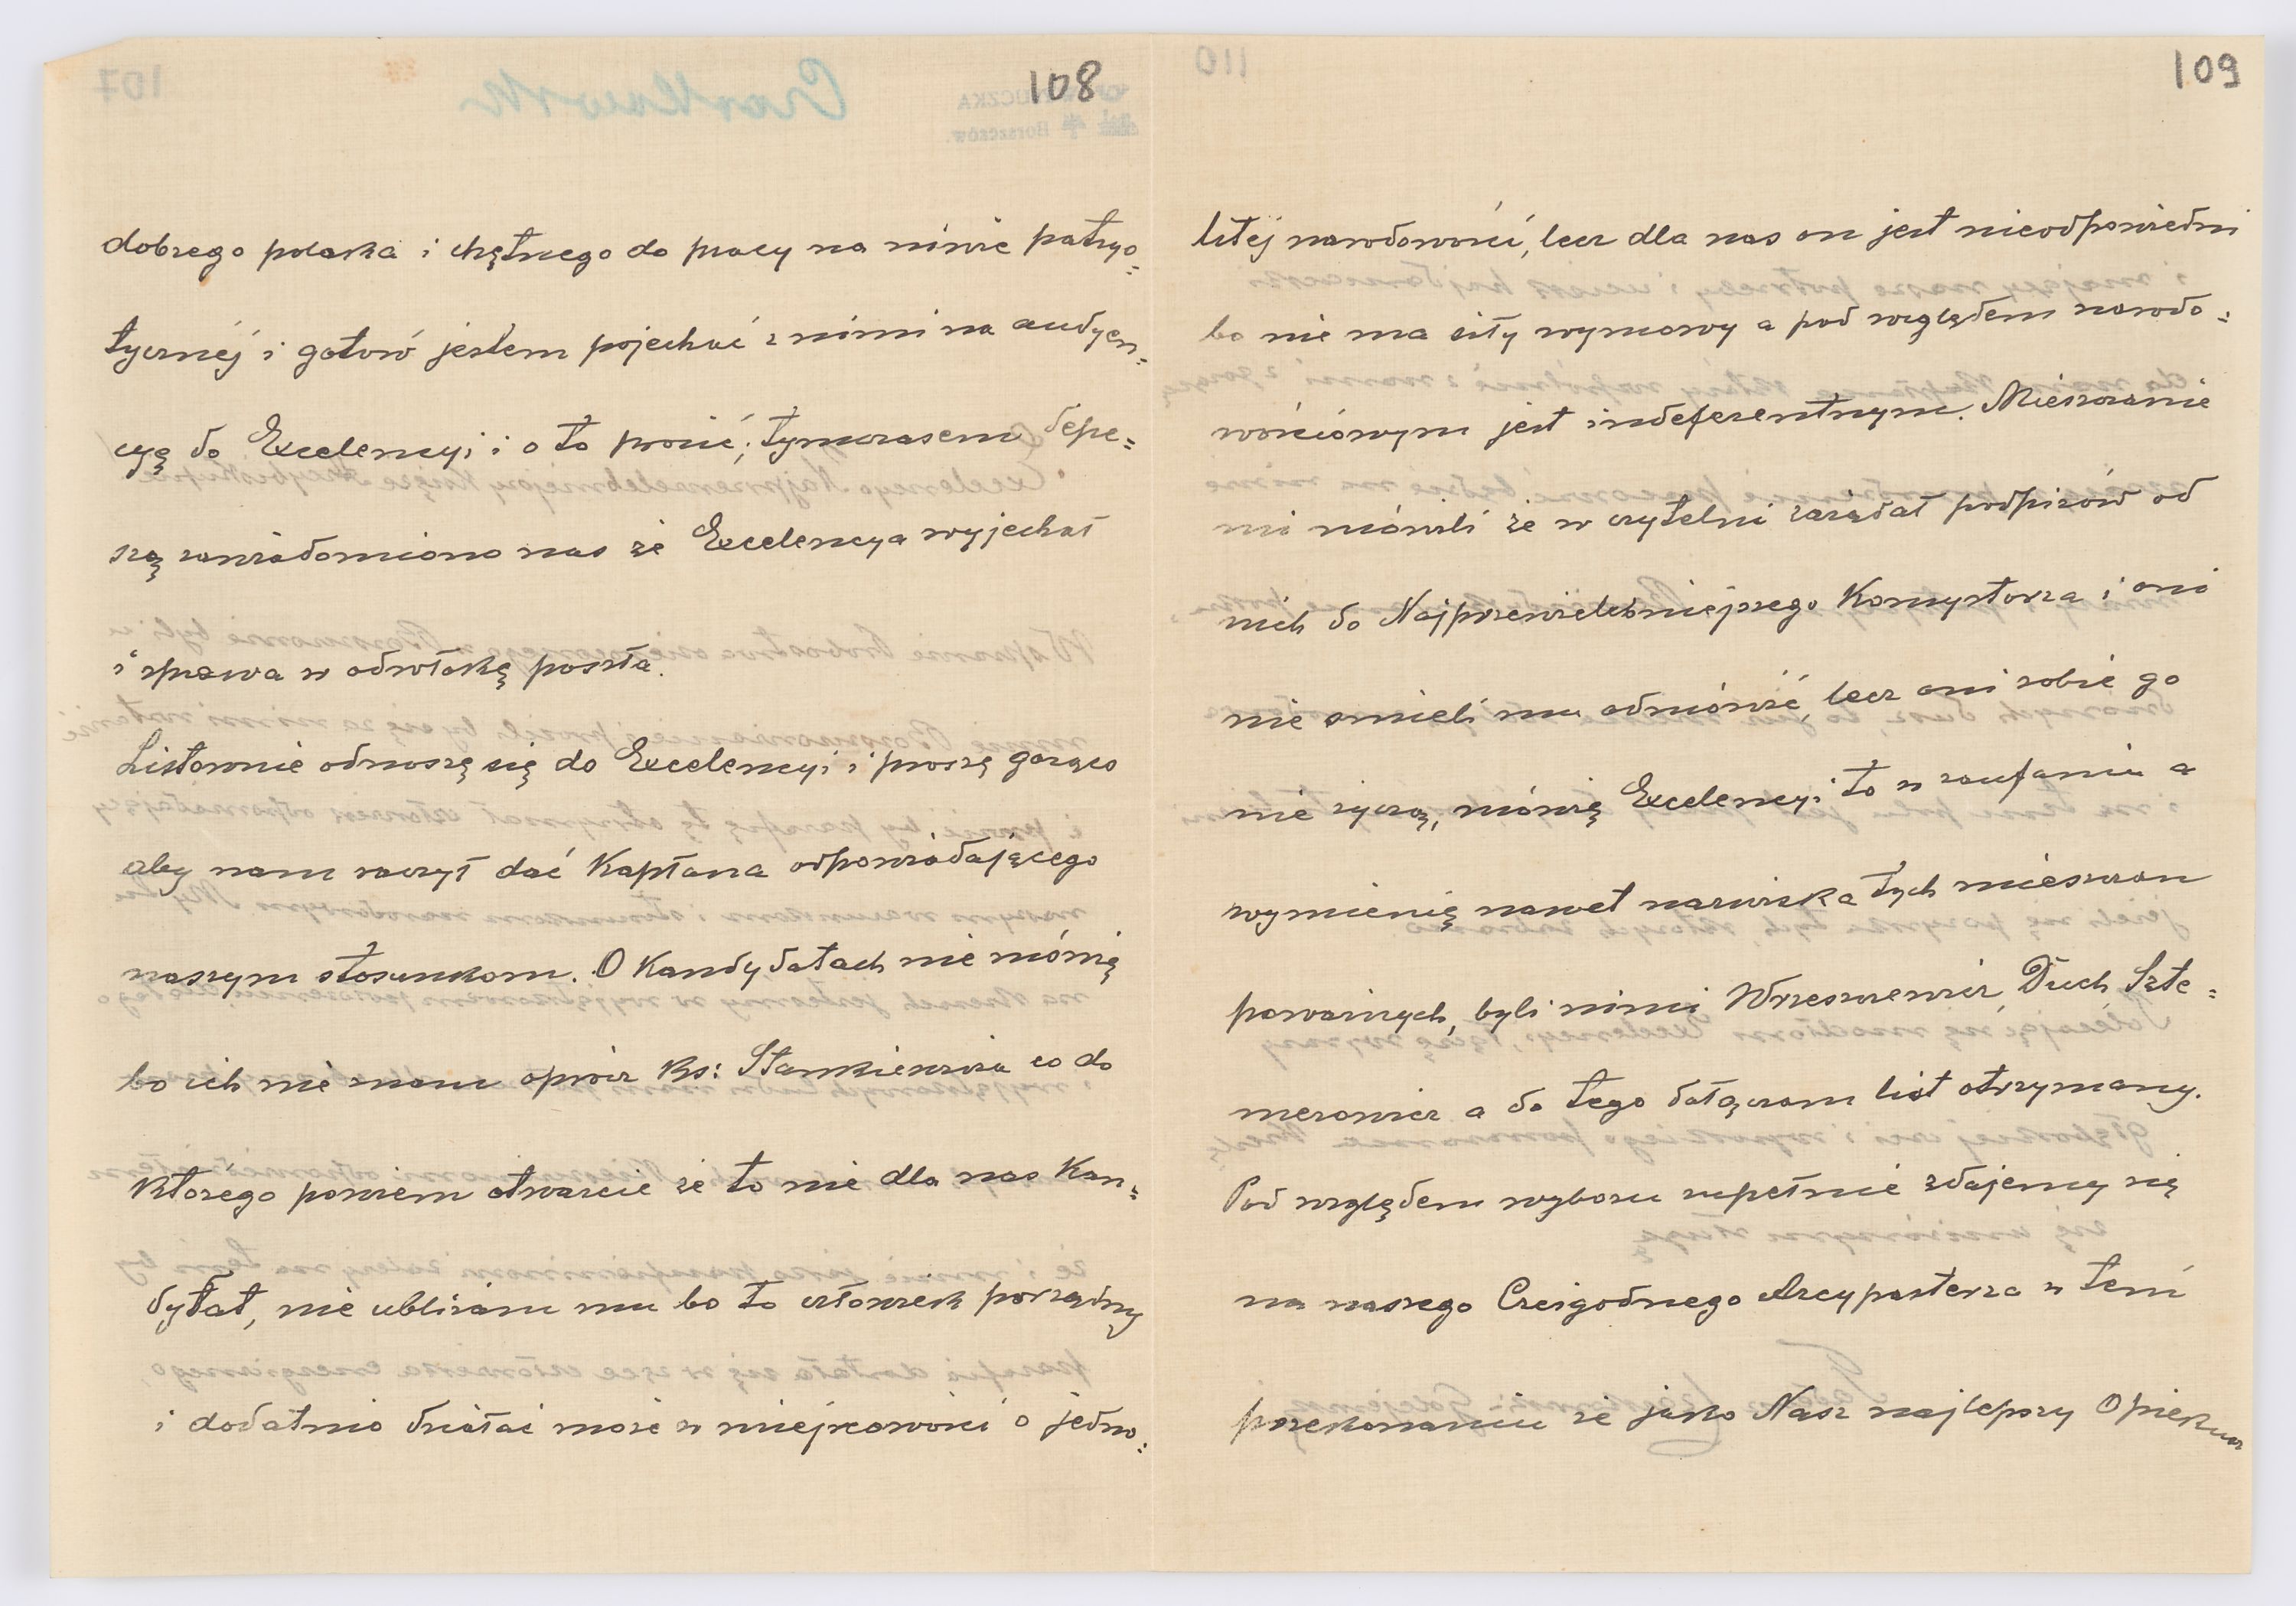 108
dobrego polaka i chętnego do pracy na niwie patryo=
tycznéj i gotów jestem pojechać z nimi na audyen=
cyę do Excelencyi i o to prosić; tymczasem depe=
szą zawiadomiono nas że Excelencya wyjechał
i sprawa w odwłokę poszła.
Listownie odnoszę się do Excelencyi i proszę gorąco
aby nam raczył dać Kapłana odpowiadającego
naszym stosunkom. O Kandydatach nie mówię
bo ich nie znam oprócz Ks: Stankiewicza co do
którego powiem otwarcie że to nie dla nas Kan=
dytat, nie ubliżam mu bo to człowiek porządny
i dodatnio działać może w miejscowości o jedno=
109
litéj narodowości, lecz dla nas on jest nieodpowiedni
bo nie ma siły wymowy a pod względem narodo=
wościowym jest indeferentnym. Mieszczanie
mi mówili że w czytelni zażądał podpisów od
nich do Najprzewielebniejszego Konsystorza i oni
nie śmieli mu odmówić, lecz oni sobie go
nie życzą, mówię Excelencyi to w zaufaniu a
wymienię nawet nazwiska tych mieszczan
poważnych, byli nimi Wrzeszczewicz, Duch, Szte=
merowicz a do tego dołączam list otrzymany.
Pod względem wyboru zupełnie zdajemy się
na naszego Czcigodnego Arcypasterza w tem
przekonaniu że jako Nasz najlepszy Opiekun